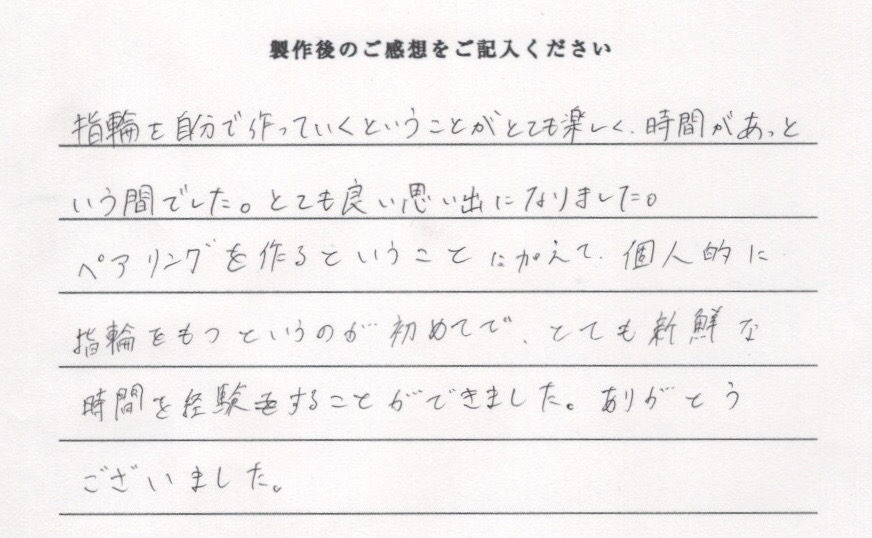 製作後のご感想をご記入ください
指輪を自分で作っていくということがとても楽しく、時間があっと
いう間でした。とても良い思い出になりました。
ペアリングを作るということに加えて、個人的に
指輪をもつというのが初めてで、とても新鮮な
時間を経験をすることができました。ありがとう
ございました。